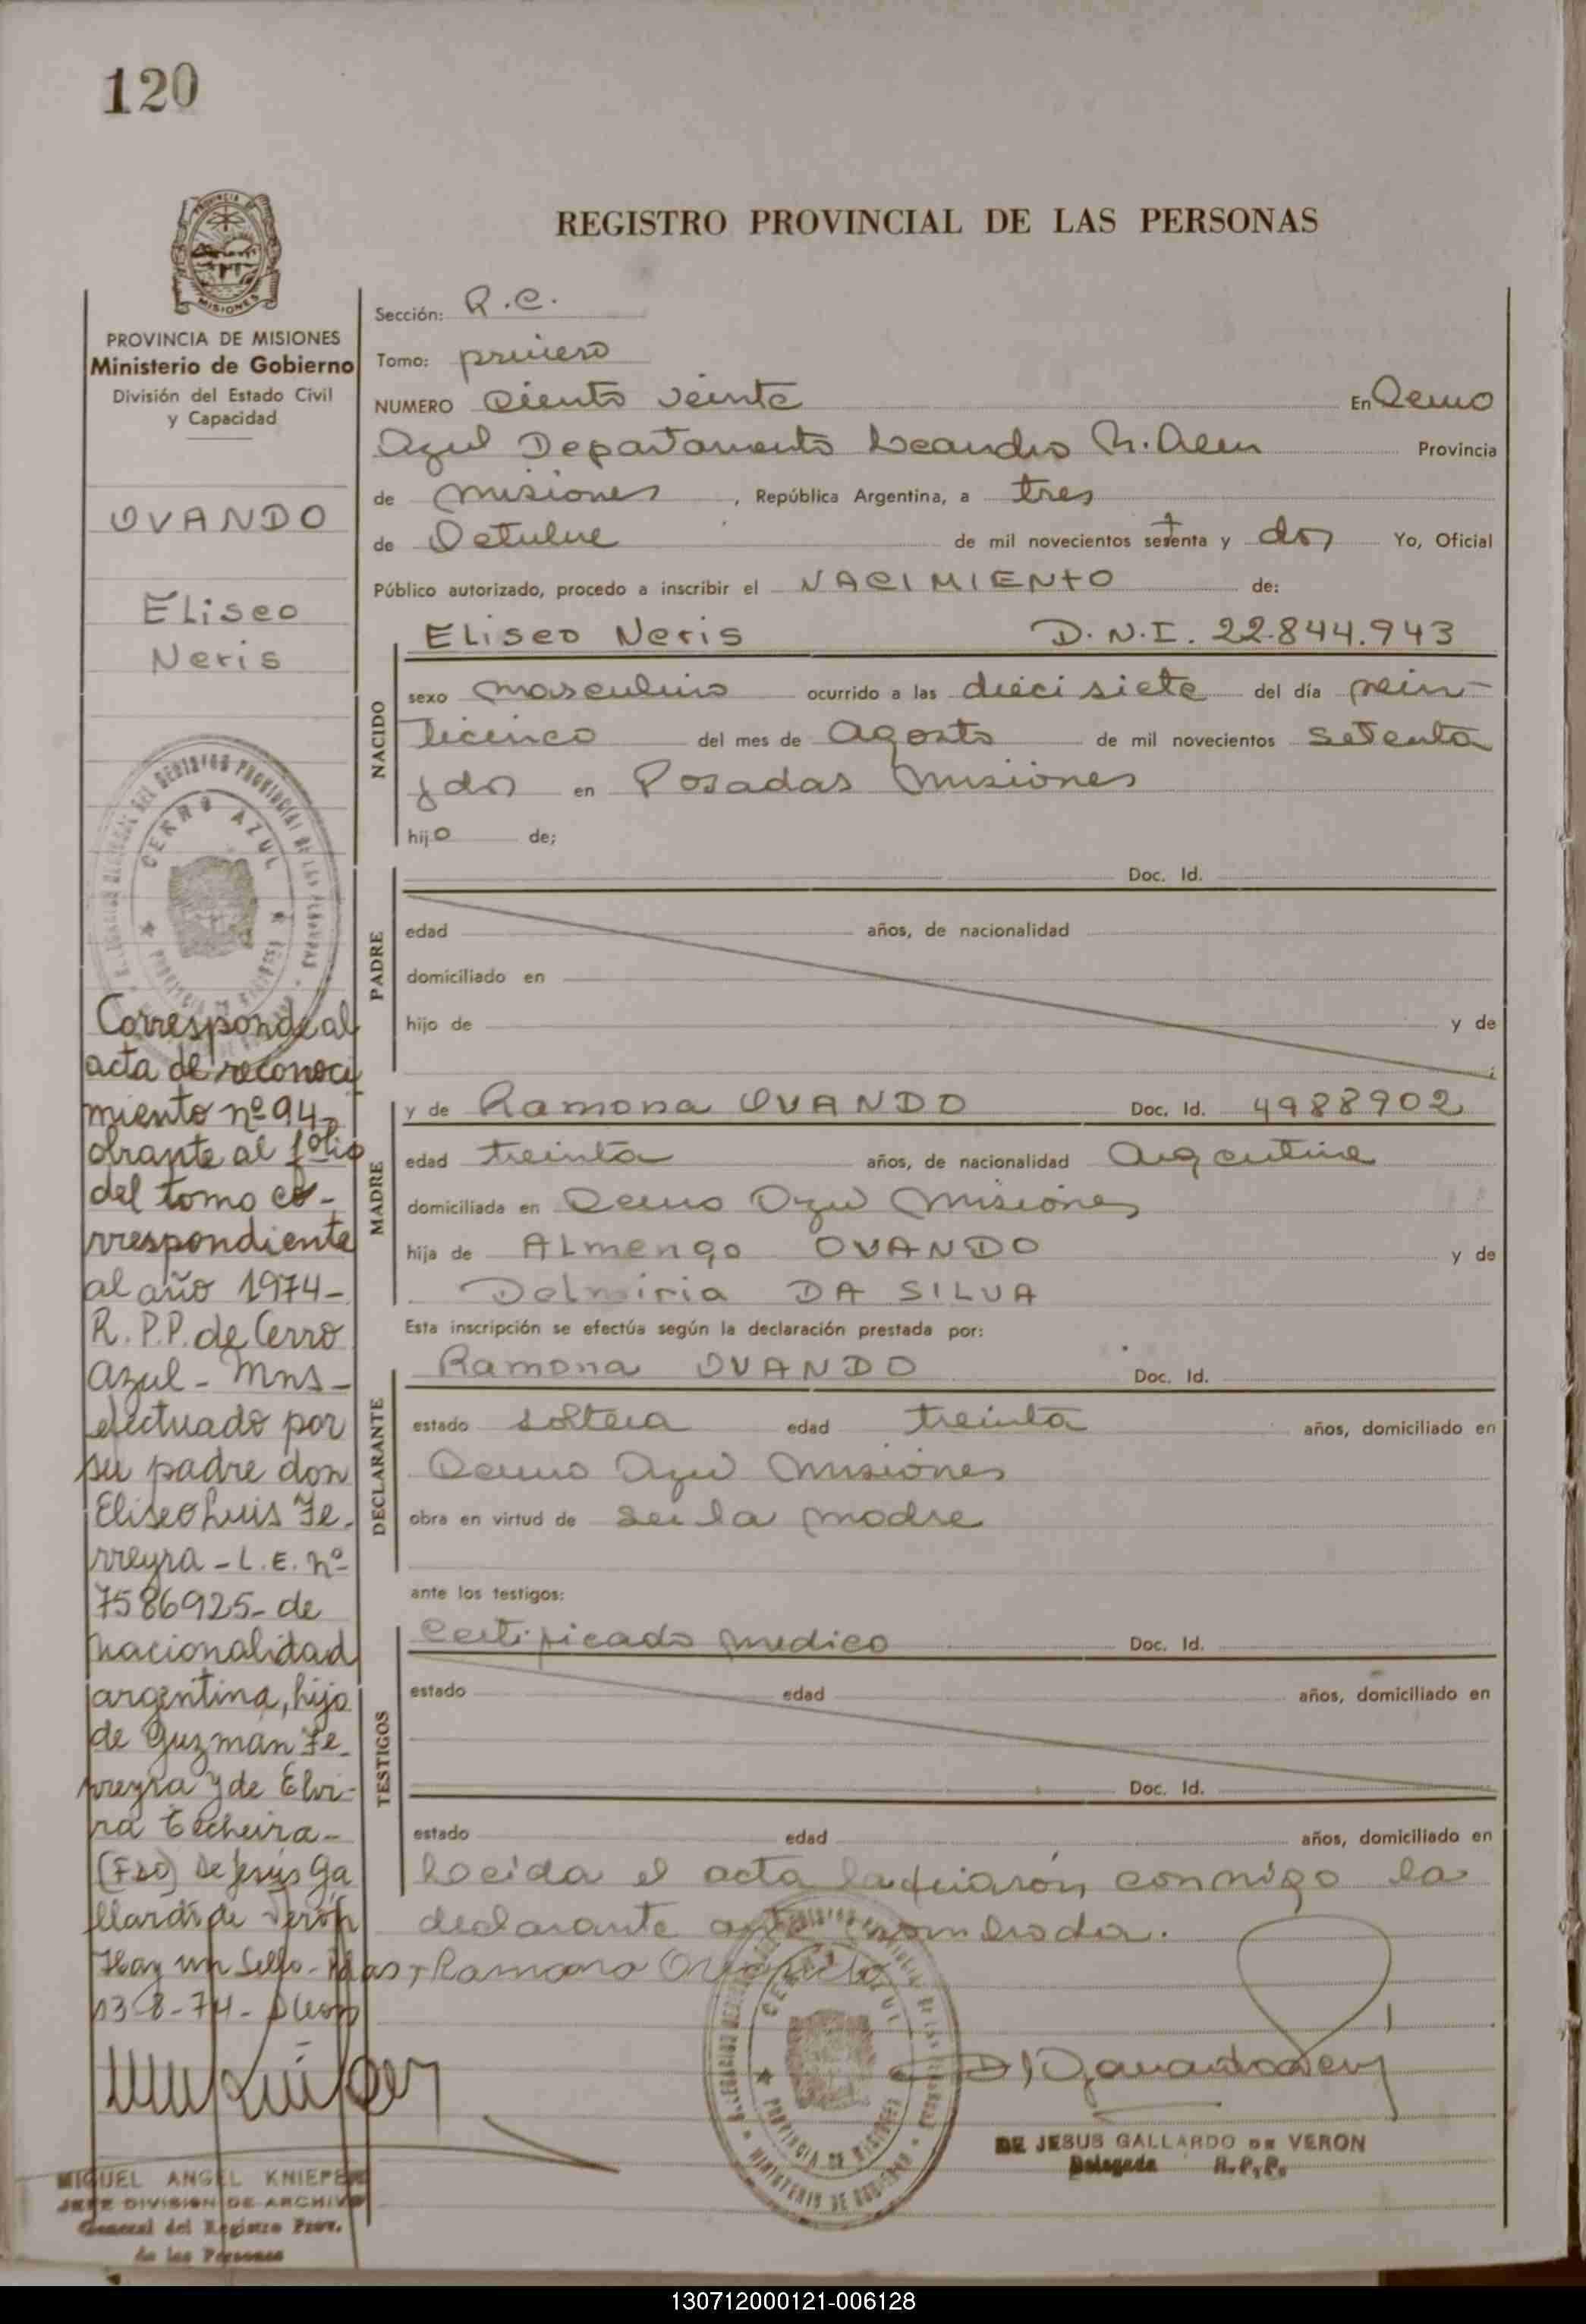 120
REGISTRO PROVINCIAL DE LAS PERSONAS
MISIONES
PROVINCIA DE MISIONES
Ministerio de Gobierno
División del Estado Civil
y Capacidad
OVANDO
Eliseo
Neris
Corresponde al
acta de reconoci
miento nº 94-
obrante al folio
del tomo co-
rrespondiente
al año 1974-
R.P.P. de Cerro
Azul - Mns-
efectuado por
su padre don
Eliseo Luis Fe-
rreyra - L.E. nº
7586925- de
nacionalidad
argentina, hijo
de Guzmán Fe-
rreyra y de Elvi-
ra Techeira-
(Fdo) De Jesús Ga
llardo de Verón
Hay un Sello- Pdas,
13-8-74-
MIGUEL ANGEL KNIEPER
JEFE DIVISION DE ARCHIVO
General del Registro Prov.
de las Personas
Sección: R.C.
Tomo: primero
NUMERO Ciento veinte En Cerro
Azul Departamento Leandro N. Alem Provincia
de Misiones, República Argentina, a tres
de Octubre de mil novecientos setenta y dos Yo, Oficial
Público autorizado, procedo a inscribir el NACIMIENTO de:
NACIDO
Eliseo Neris D.N.I. 22.844.943
sexo masculino ocurrido a las diecisiete del día vein-
ticinco del mes de Agosto de mil novecientos setenta
y dos en Posadas Misiones
hijo de;
PADRE
Doc. Id.
edad años, de nacionalidad
domiciliado en
hijo de y de
MADRE
y de Ramona OVANDO Doc. Id. 4988902
edad treinta años, de nacionalidad Argentina
domiciliada en Cerro Azul Misiones
hija de Almengo OVANDO y de
Delmiria DA SILVA
Esta inscripción se efectúa según la declaración prestada por:
DECLARANTE
Ramona OVANDO Doc. Id.
estado soltera edad treinta años, domiciliado en
Cerro Azul Misiones
obra en virtud de ser la madre
ante los testigos:
TESTIGOS
Certificado medico Doc. Id.
estado edad años, domiciliado en
Doc. Id.
estado edad años, domiciliado en
Leeida el acta la firiaron conmigo la
declarante ante nombrada.
Ramona Ovando
CERRO AZUL
PROVINCIA DE MISIONES
MINISTERIO DE GOBIERNO
DE JESUS GALLARDO DE VERON
Delegada R.P.P.
130712000121-006128